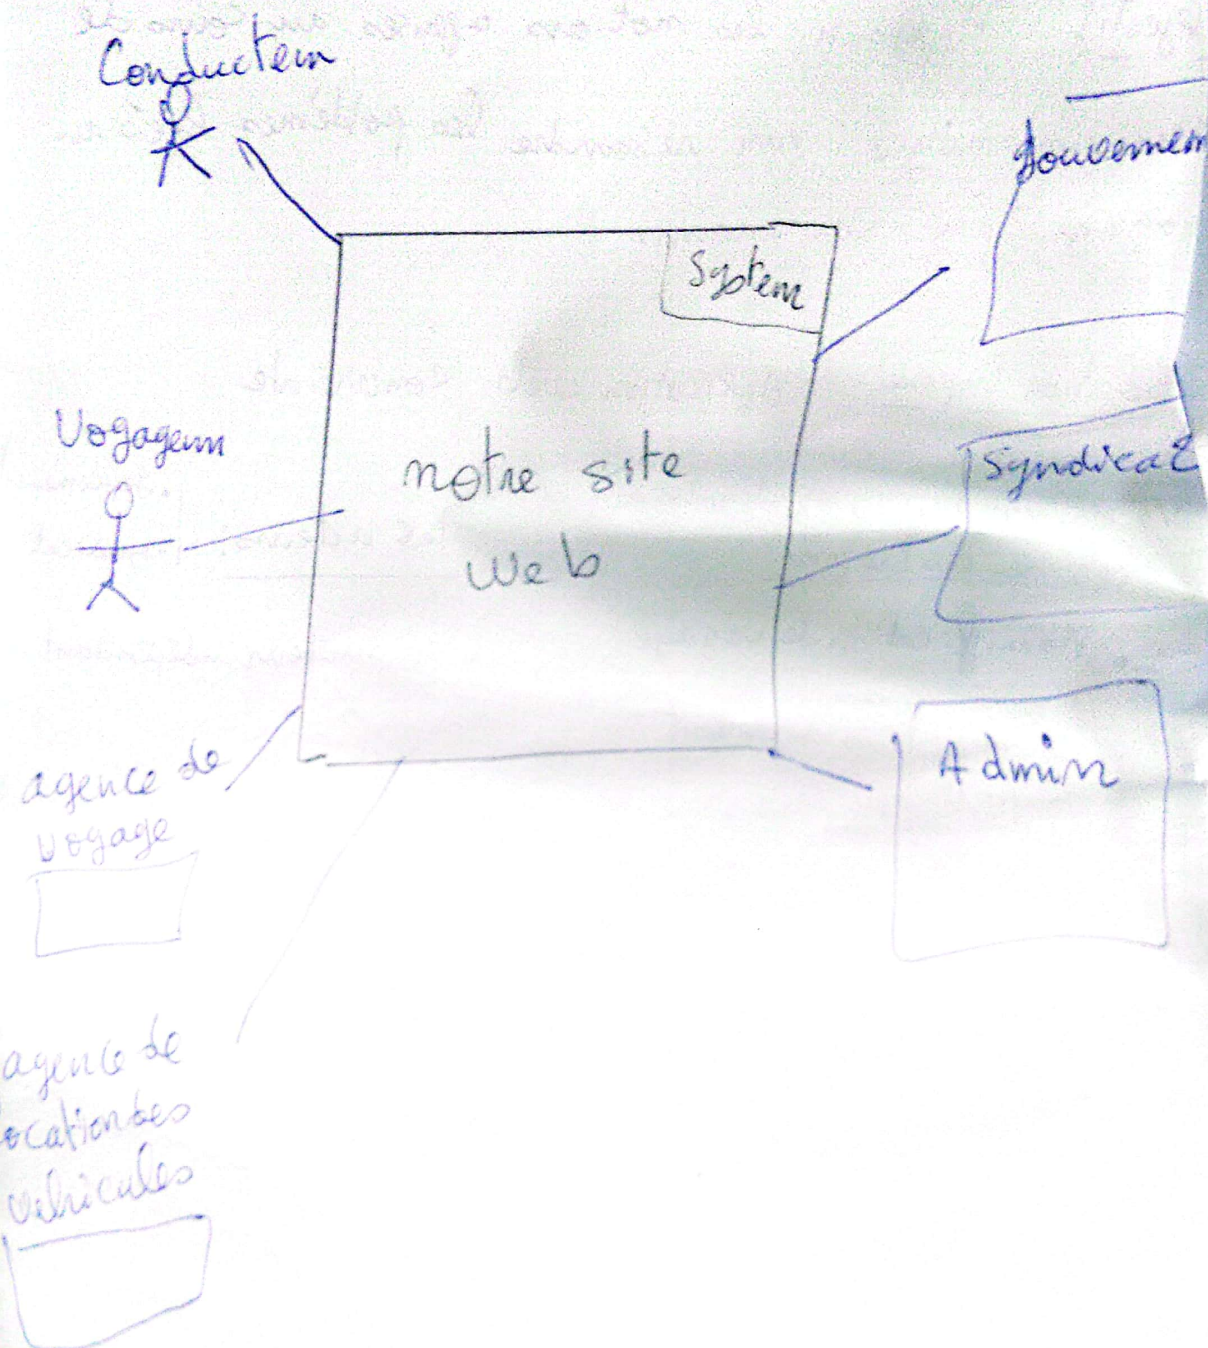 Conducteur
Gouvernem
System
Voyageur
notre site
web
Syndicat
agence de
voyage
Admin
agence de
location des
vehicules